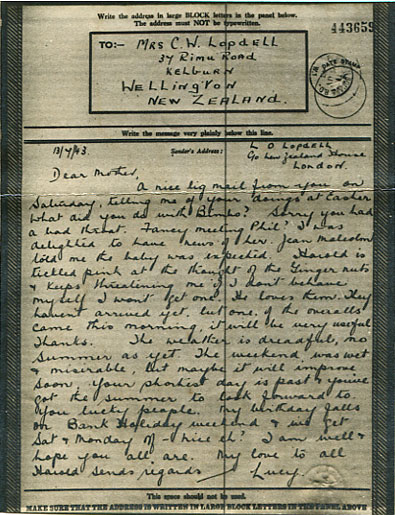 Write the address in large BLOCK letters in the panel below.
The address must NOT be typewritten.
443659
TO:- MRS C.W. LOPDELL
37 RIMU ROAD
KELBURN
WELLINGTON
NEW ZEALAND.
DATE STAMP
Write the message very plainly below this line.
13/7/43. Sender's Address: L O LOPDELL
C/o New Zealand House
LONDON.
Dear Mother,
A nice big mail from you on
Saturday, telling me of your doings at Easter
What did you do with Bimbo? Sorry you had
a bad throat. Fancy meeting Phil? I was
delighted to have news of her. Jean Malcolm
told me the baby was expected. Harold is
tickled pink at the thought of the Ginger nuts
& keeps threatening me if I don't behave
myself I wont get one. He loves them. They
haven't arrived yet, but one of the overalls
came this morning, it will be very useful
Thanks. The weather is dreadful, no
summer as yet. The weekend, was wet
& misirable, but maybe it will improve
soon, your shortest day is past & you've
got the summer to look forward to
you lucky people. My birthday falls
on Bank Holiday weekend & we get
Sat & Monday off - nice eh? I am well &
hope you all are. My love to all
Harold sends regards Lucy.
This space should not be used.
MAKE SURE THAT THE ADDRESS IS WRITTEN IN LARGE BLOCK LETTERS IN THE PANEL ABOVE